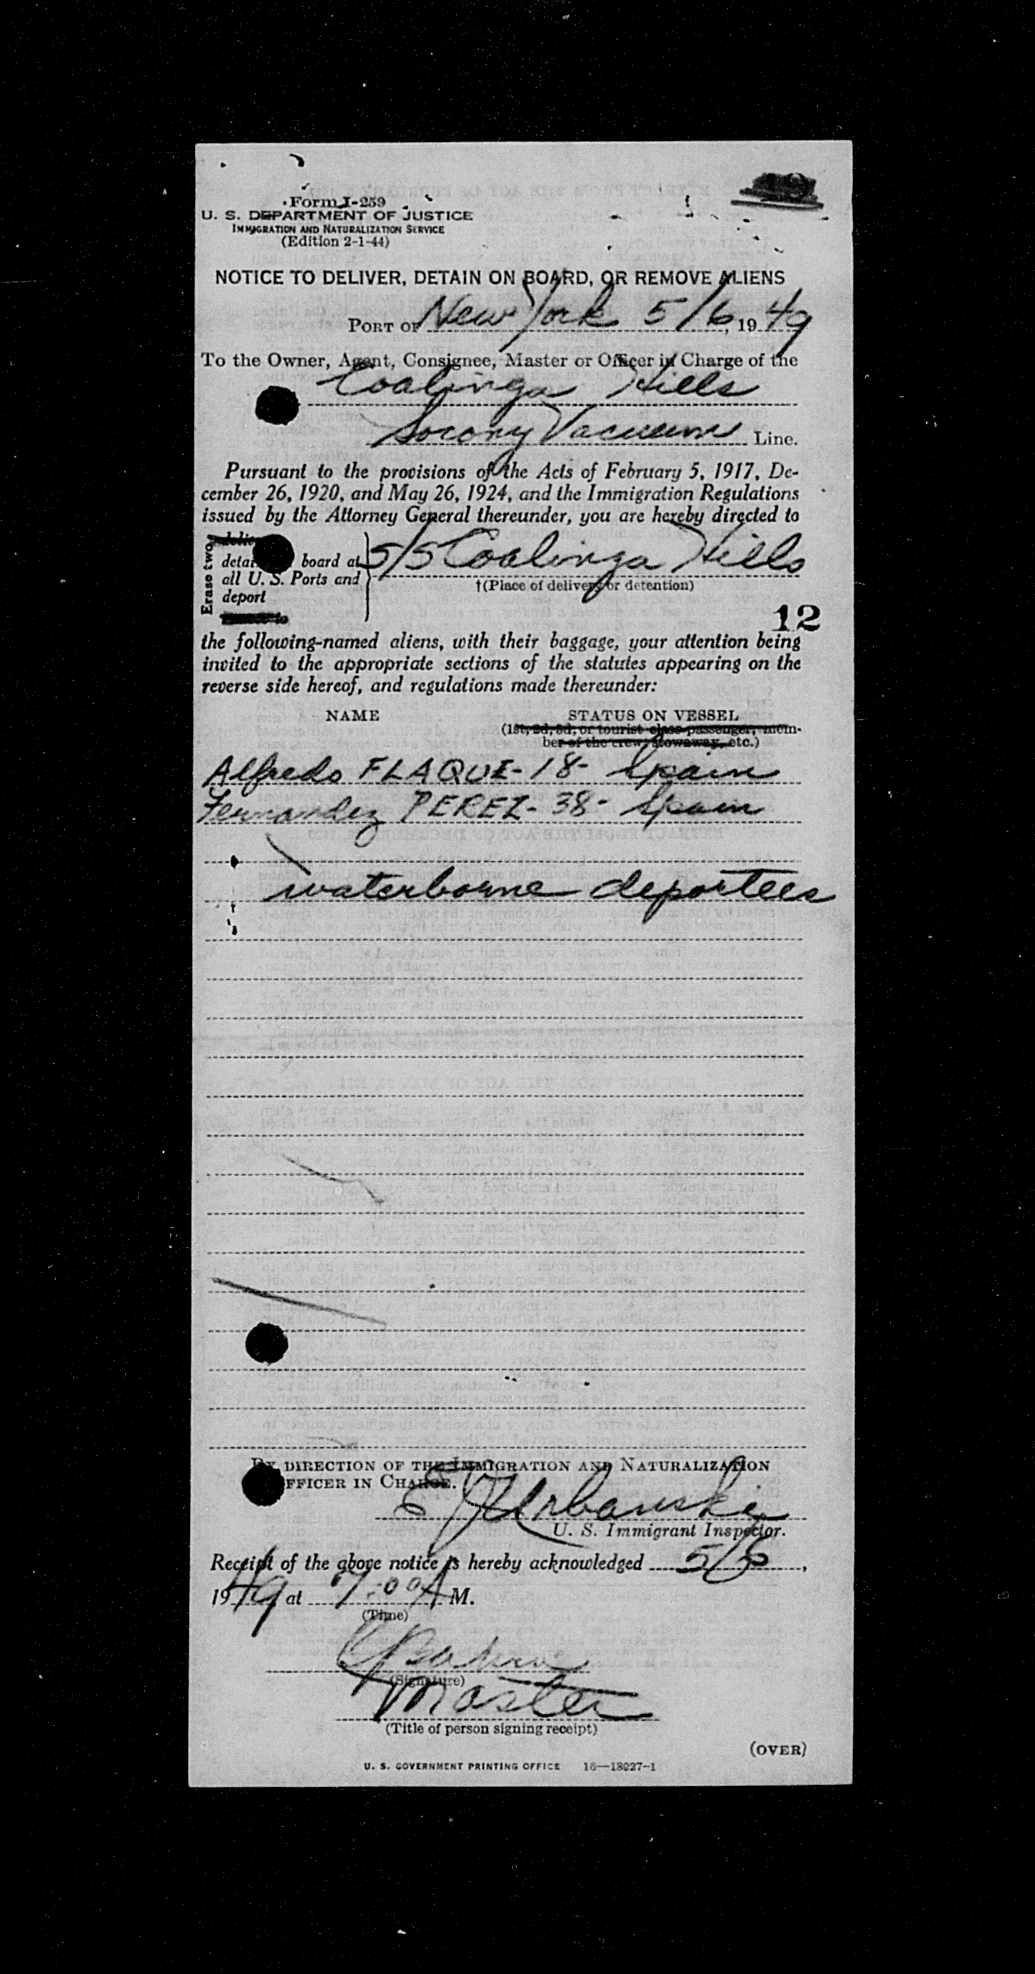 Form I-259
U. S. DEPARTMENT OF JUSTICE
IMMIGRATION AND NATURALIZATION SERVICE
(Edition 2-1-44)
NOTICE TO DELIVER, DETAIN ON BOARD, OR REMOVE ALIENS
PORT OF New York 5/6, 1949
To the Owner, Agent, Consignee, Master or Officer in Charge of the
Coalinga Hills
Socony Vacuum Line.
Pursuant to the provisions of the Acts of February 5, 1917, De-
cember 26, 1920, and May 26, 1924, and the Immigration Regulations
issued by the Attorney General thereunder, you are hereby directed to
Erase two
detain board at
all U. S. Ports and
deport
S/S Coalinga Hills
†(Place of delivery or detention)
12
the following-named aliens, with their baggage, your attention being
invited to the appropriate sections of the statutes appearing on the
reverse side hereof, and regulations made thereunder:
NAME STATUS ON VESSEL
(1st, 2d, 3d, or tourist class passenger, mem-
ber of the crew, stowaway, etc.)
Alfredo FLAQUE - 18 - Spain
Fernandez PEREZ - 38 - Spain
waterborne deportees
BY DIRECTION OF THE IMMIGRATION AND NATURALIZATION
OFFICER IN CHARGE.
E J Urbanski
U. S. Immigrant Inspector.
Receipt of the above notice is hereby acknowledged 5/6,
1949 at 7:00 A M.
(Time)
(Signature)
Master
(Title of person signing receipt)
(OVER)
U. S. GOVERNMENT PRINTING OFFICE 16—18027-1